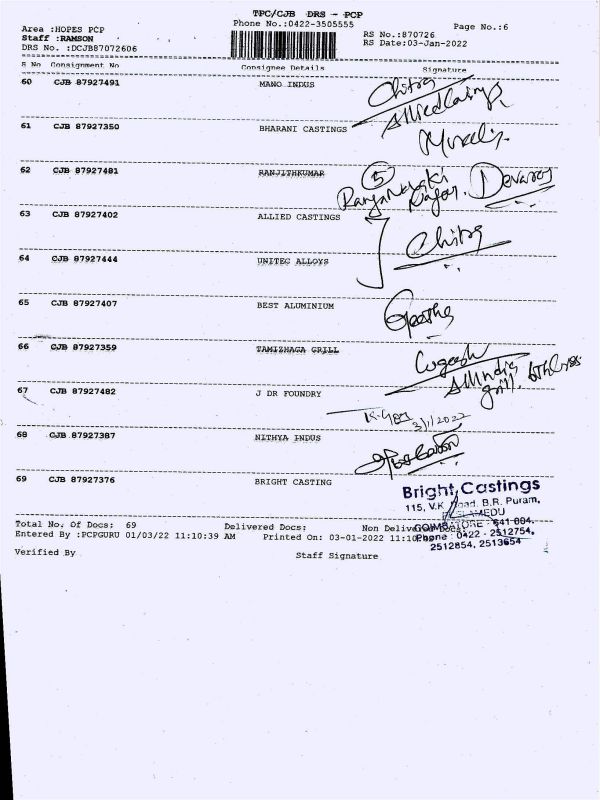 TPC/CJB DRS - PCP
Area :HOPES PCP
Phone No.:0422-3505555
Page No.:6
Staff :RAMSON
RS No.:870726
DRS No. :DCJB87072606
RS Date:03-Jan-2022
S No Consignment No Consignee Details Signature
60 CJB 87927491 MANO INDUS Chitra
Allied Casings
61 CJB 87927350 BHARANI CASTINGS
62 CJB 87927481 RANJITHKUMAR 5 Devaraj
Nagar.
63 CJB 87927402 ALLIED CASTINGS
Chitra
64 CJB 87927444 UNITEC ALLOYS
65 CJB 87927407 BEST ALUMINIUM Geetha
66 CJB 87927359 TAMIZHAGA GRILL
All India
grill.
67 CJB 87927482 J DR FOUNDRY
3/1/2022
68 CJB 87927387 NITHYA INDUS
69 CJB 87927376 BRIGHT CASTING
Bright Castings
115, V.K. Road, B.R. Puram,
PEELAMEDU
COIMBATORE - 641 004.
Phone : 0422 - 2512754,
2512854, 2513654
Total No. Of Docs: 69 Delivered Docs: Non Delivered Docs:
Entered By :PCPGURU 01/03/22 11:10:39 AM Printed On: 03-01-2022
Verified By Staff Signature